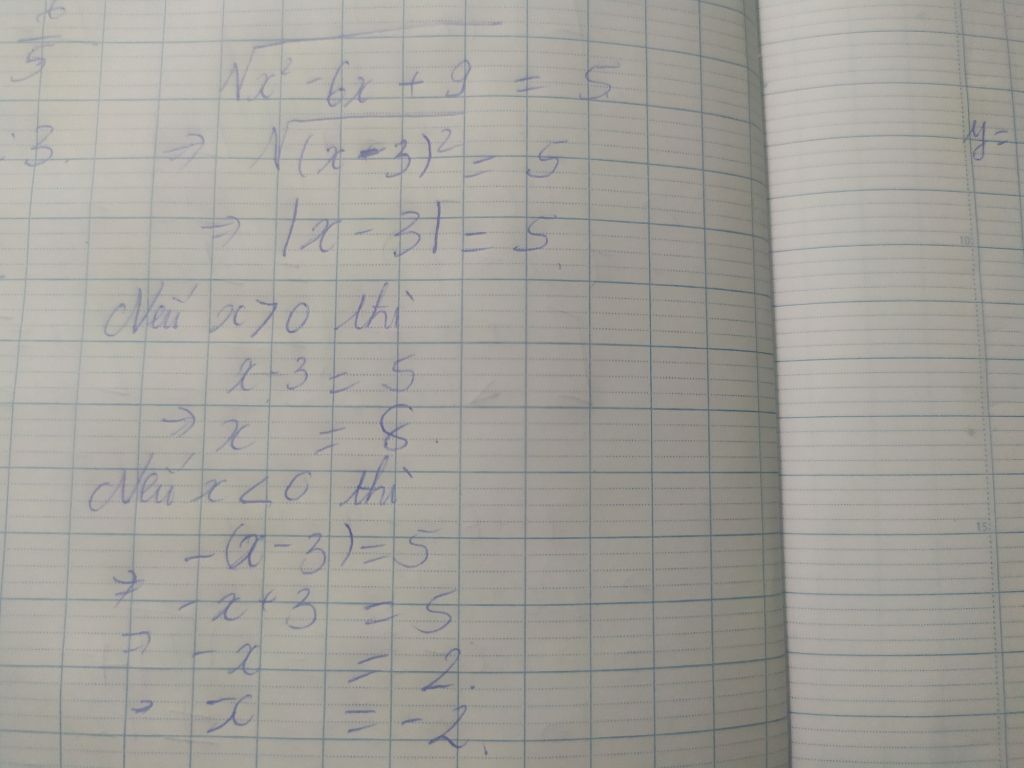 x
5
√x² - 6x + 9 = 5
: 3. ⇒ √(x - 3)² = 5
y=
⇒ |x - 3| = 5
10
Nếu x > 0 thì
x - 3 = 5
⇒ x = 8
Nếu x < 0 thì
15
-(x - 3) = 5
⇒ -x + 3 = 5
⇒ -x = 2.
⇒ x = -2.